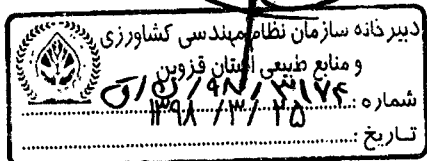 دبیرخانه سازمان نظام مهندسی کشاورزی
و منابع طبیعی استان قزوین
شماره: ۳۱۷۴ / ۹۸ /
تاریخ: ۱۳۹۸ / ۳ / ۲۵